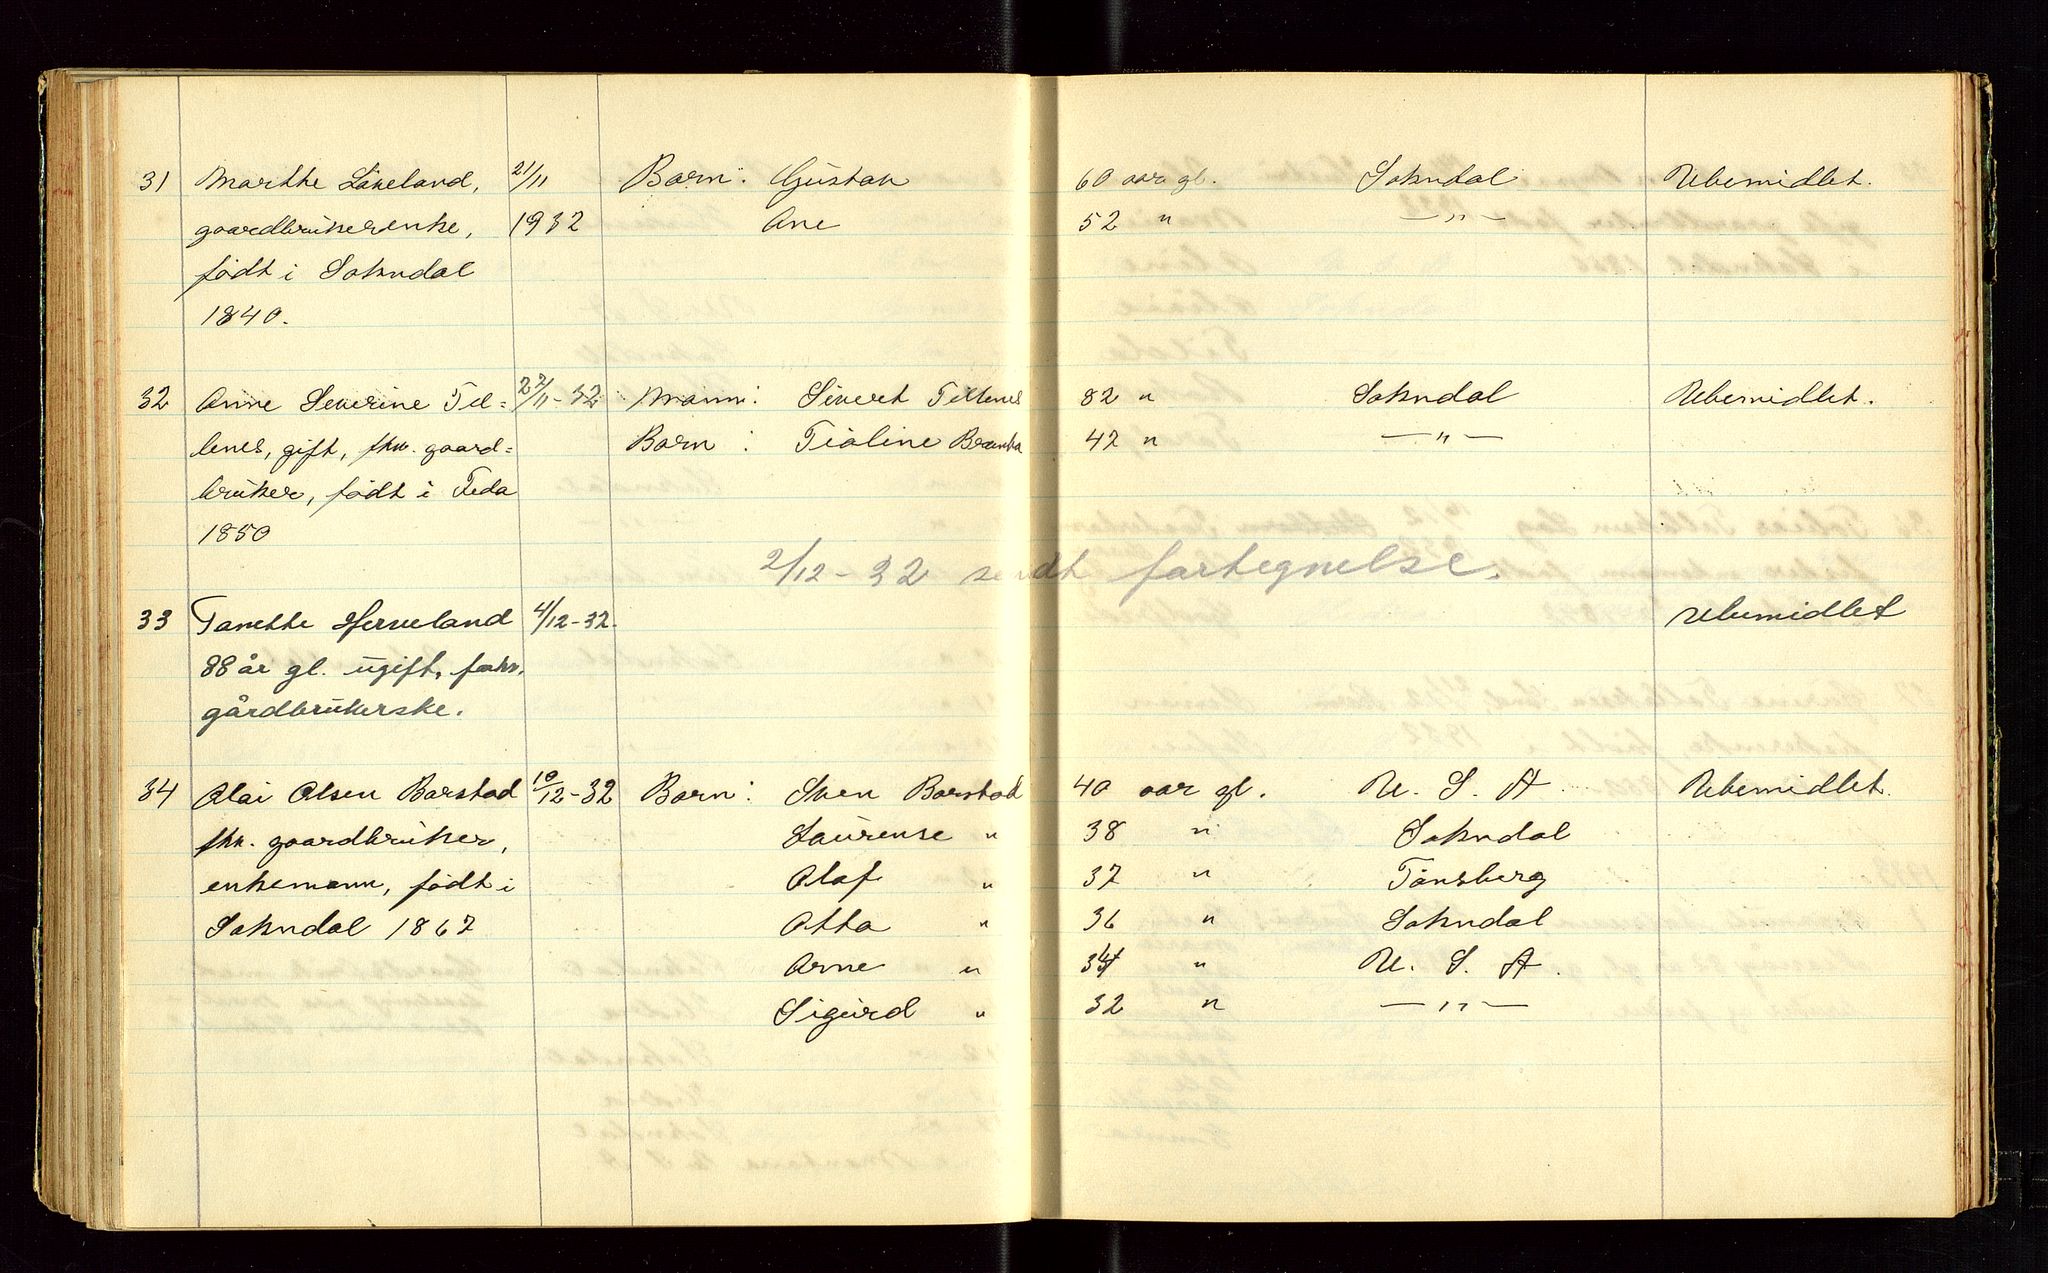 31 Marthe Løveland, 21/11 Barn: Gustav 60 aar gl. Sokndal Ubemidlet.
gaardbrukerenke, 1932 Ane 52 " —"—
født i Sokndal
1840.
32 Anne Severine Tel= 22/11-32 Mann: Sivert Tellenes 82 " Sokndal Ubemidlet.
lenes, gift, fhv. gaard= Barn: Tioline 42 " —"—
bruker, født i Feda
1850
2/12-32 sendt fortegnelse.
33 Tanette Herveland 4/12-32. Ubemidlet
88 år gl. ugift, forhv.
gårdbrukerske.
34 Olai Olsen Barstad 10/12-32 Barn: Sven Barstad 40 aar gl. U. S. A Ubemidlet.
fhv. gaardbruker, Laurense " 38 " Sokndal
enkemann, født i Olaf " 37 " Tønsberg
Sokndal 1867 Otto " 36 " Sokndal
Arne " 34 " U. S. A.
Sigurd " 32 " —"—